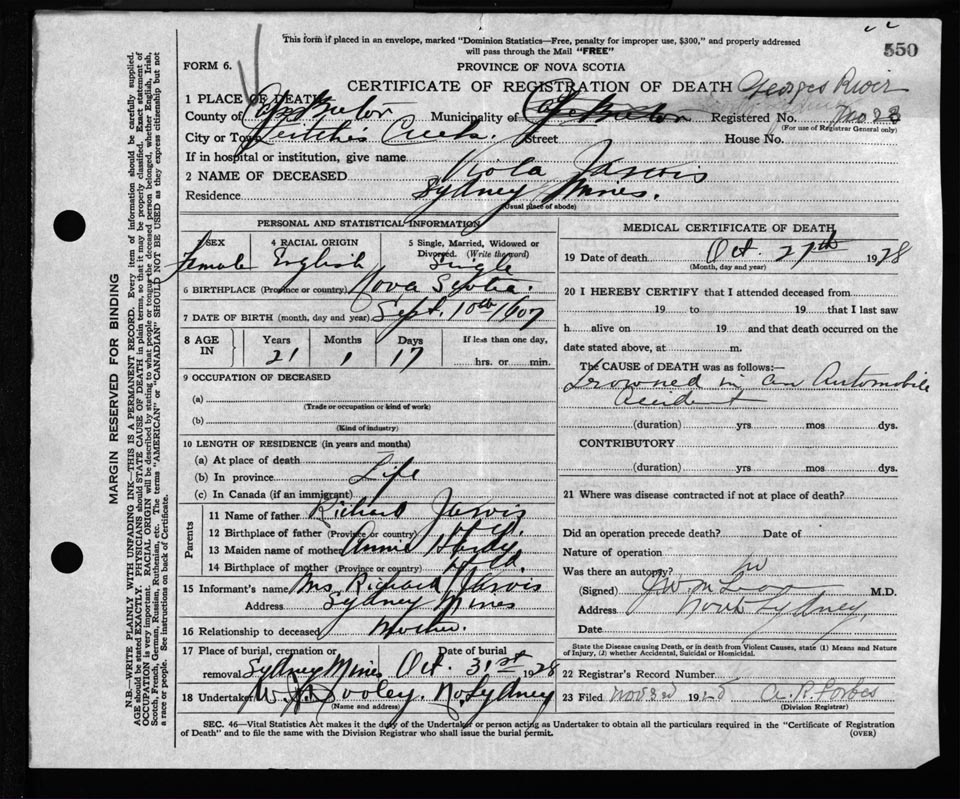 This form if placed in an envelope, marked "Dominion Statistics—Free, penalty for improper use, $300," and properly addressed
will pass through the Mail "FREE"
550
FORM 6.
PROVINCE OF NOVA SCOTIA
CERTIFICATE OF REGISTRATION OF DEATH Georges River
1 PLACE OF DEATH
County of Cape Breton Municipality of Cape Breton Registered No. 23
(For use of Registrar General only)
City or Town Leitches Creek Street House No.
If in hospital or institution, give name
2 NAME OF DECEASED Viola Jarvis
Residence Sydney Mines.
(Usual place of abode)
PERSONAL AND STATISTICAL INFORMATION
3 SEX 4 RACIAL ORIGIN 5 Single, Married, Widowed or
Divorced. (Write the word)
Female English Single
6 BIRTHPLACE (Province or country) Nova Scotia.
7 DATE OF BIRTH (month, day and year) Sept. 10th 1907
8 AGE IN Years Months Days If less than one day,
21 1 17 hrs. or min.
9 OCCUPATION OF DECEASED
(a)
(Trade or occupation or kind of work)
(b)
(Kind of industry)
10 LENGTH OF RESIDENCE (in years and months)
(a) At place of death
(b) In province Life
(c) In Canada (if an immigrant)
Parents
11 Name of father Richard Jarvis
12 Birthplace of father (Province or country) Nfld.
13 Maiden name of mother Annie
14 Birthplace of mother (Province or country) Nfld.
15 Informant's name Mrs Richard Jarvis
Address Sydney Mines
16 Relationship to deceased Mother.
17 Place of burial, cremation or Date of burial
removal Sydney Mines Oct. 31st 1928
18 Undertaker Dooley. No. Sydney
(Name and address)
MEDICAL CERTIFICATE OF DEATH
19 Date of death Oct. 27th 1928
(Month, day and year)
20 I HEREBY CERTIFY that I attended deceased from
19 to 19 that I last saw
h alive on 19 and that death occurred on the
date stated above, at m.
The CAUSE of DEATH was as follows:—
Drowned in an Automobile
Accident
(duration) yrs mos dys.
CONTRIBUTORY
(duration) yrs mos dys.
21 Where was disease contracted if not at place of death?
Did an operation precede death? Date of
Nature of operation
Was there an autopsy? no
(Signed) M.D.
Address North Sydney,
Date
State the Disease causing Death, or in death from Violent Causes, state (1) Means and Nature
of Injury, (2) whether Accidental, Suicidal or Homicidal.
22 Registrar's Record Number
23 Filed Nov 3rd 1928 A. R. Forbes
(Division Registrar)
SEC. 46—Vital Statistics Act makes it the duty of the Undertaker or person acting as Undertaker to obtain all the particulars required in the "Certificate of Registration
of Death" and to file the same with the Division Registrar who shall issue the burial permit.
(OVER)
MARGIN RESERVED FOR BINDING
N.B.—WRITE PLAINLY WITH UNFADING INK—THIS IS A PERMANENT RECORD. Every item of information should be carefully supplied.
AGE should be stated EXACTLY. PHYSICIANS should STATE CAUSE OF DEATH in plain terms, so that it may be properly classified. Exact statement of
OCCUPATION is very important. RACIAL ORIGIN will be described by stating to what people or tongue the deceased person belonged, whether English, Irish,
Scotch, French, German, Russian, Ruthenian, etc. The terms "AMERICAN" or "CANADIAN" SHOULD NOT BE USED as they express citizenship but not
a race or people. See instructions on back of Certificate.